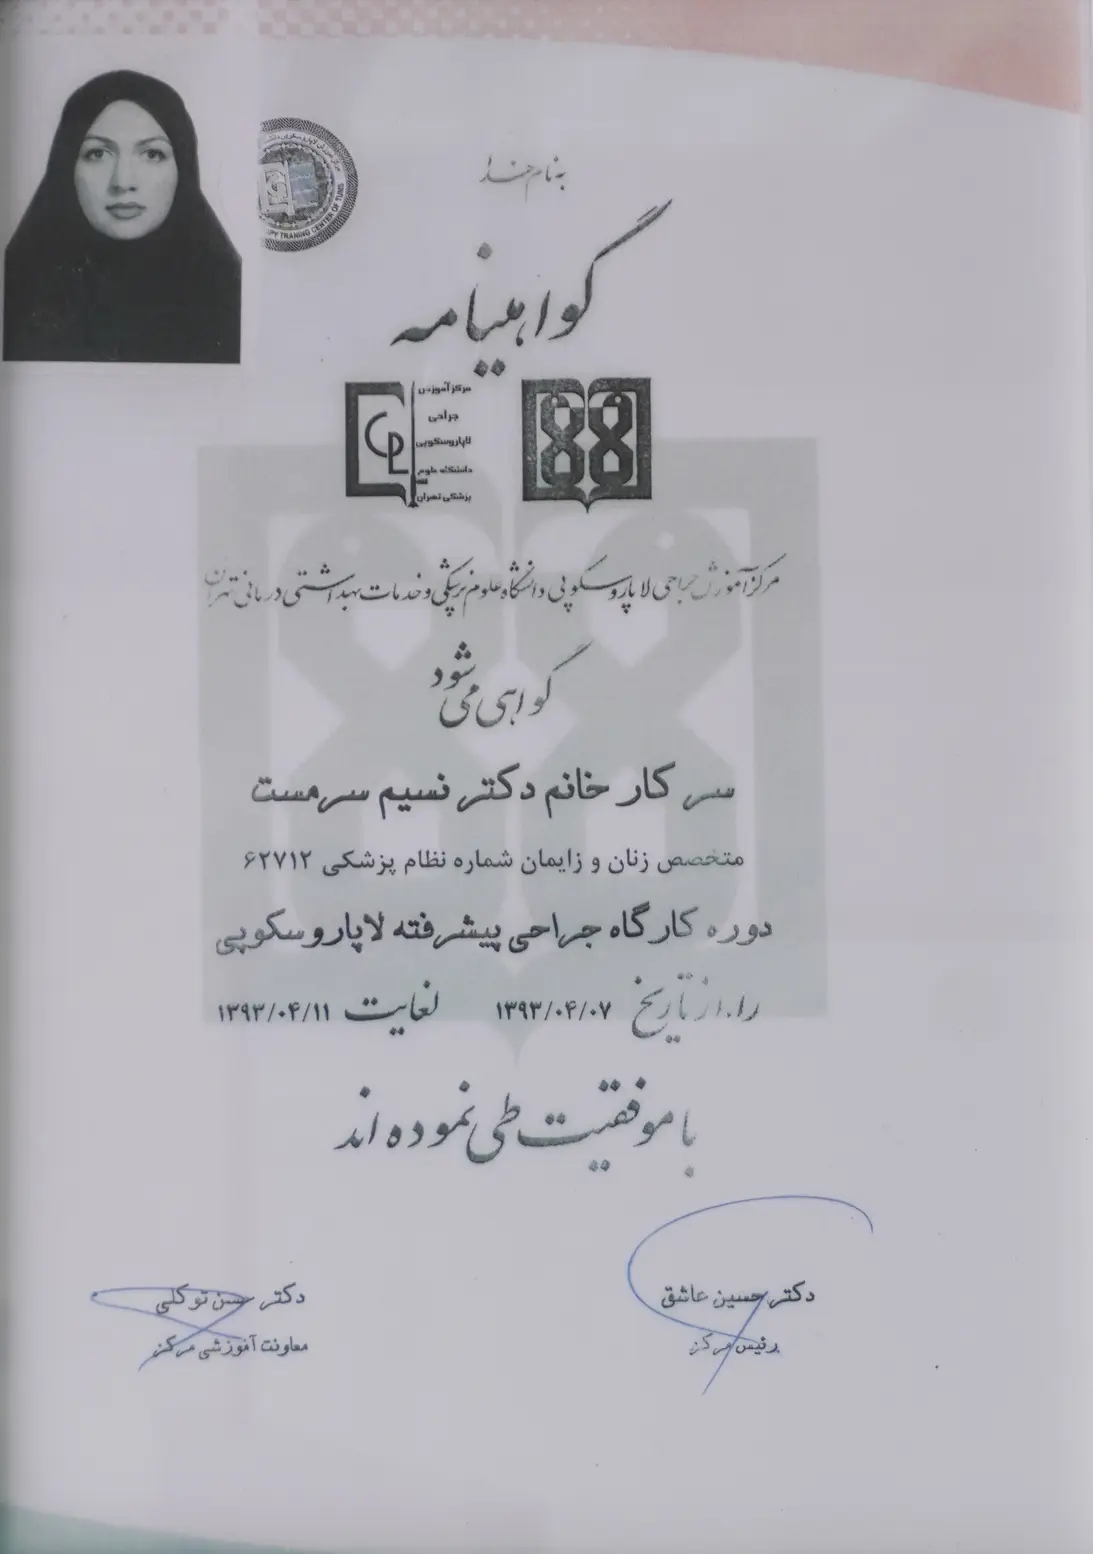 به نام خدا
گواهینامه
مرکز آموزش
جراحی
لاپاروسکوپی
دانشگاه علوم
پزشکی تهران
مرکز آموزش جراحی لاپاروسکوپی دانشگاه علوم پزشکی و خدمات بهداشتی درمانی تهران
گواهی می شود
سرکار خانم دکتر نسیم سرمست
متخصص زنان و زایمان شماره نظام پزشکی ۶۲۷۱۲
دوره کارگاه جراحی پیشرفته لاپاروسکوپی
را، از تاریخ ۱۳۹۳/۰۴/۰۷ لغایت ۱۳۹۳/۰۴/۱۱
با موفقیت طی نموده اند
دکتر حسین عاشق
رئیس مرکز
دکتر حسن توکلی
معاونت آموزشی مرکز
TRANING CENTER OF TUMS